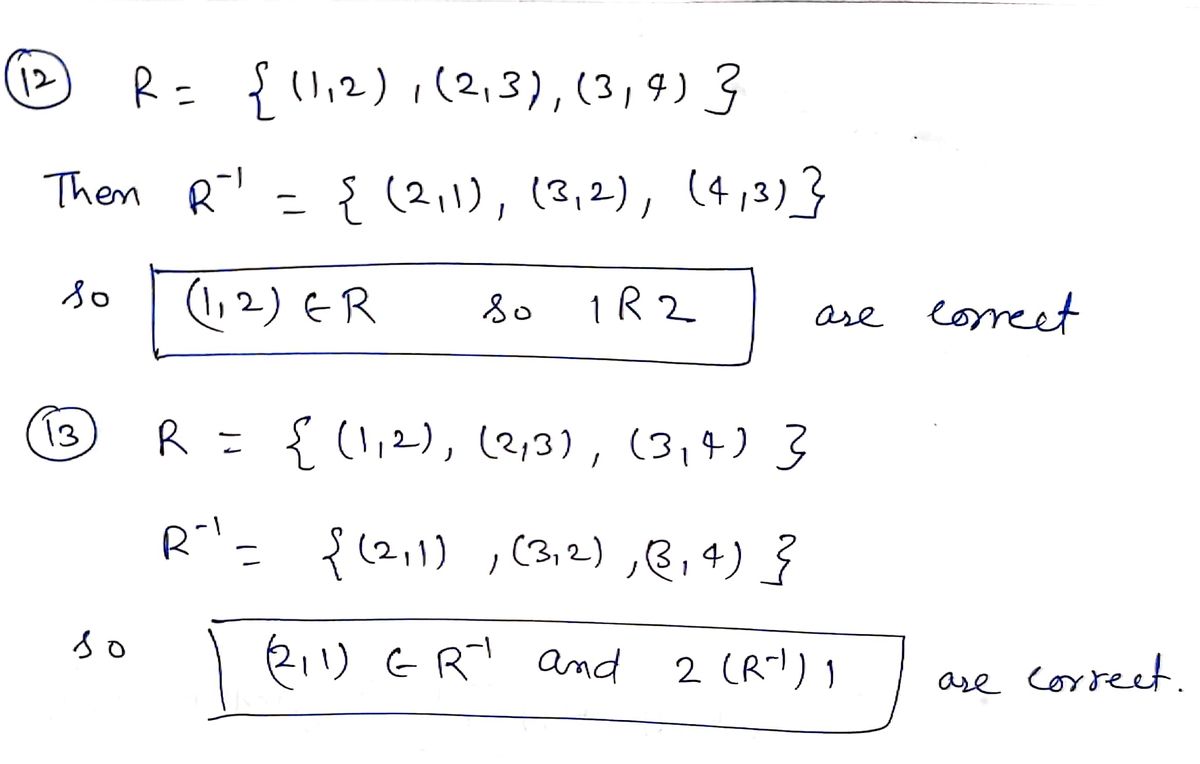 12 R = { (1,2) , (2,3), (3,4) }
Then R⁻¹ = { (2,1), (3,2), (4,3) }
so (1,2) ∈ R so 1 R 2 are correct
13 R = { (1,2), (2,3), (3,4) }
R⁻¹ = { (2,1) , (3,2) , (3,4) }
so (2,1) ∈ R⁻¹ and 2 (R⁻¹) 1 are correct.